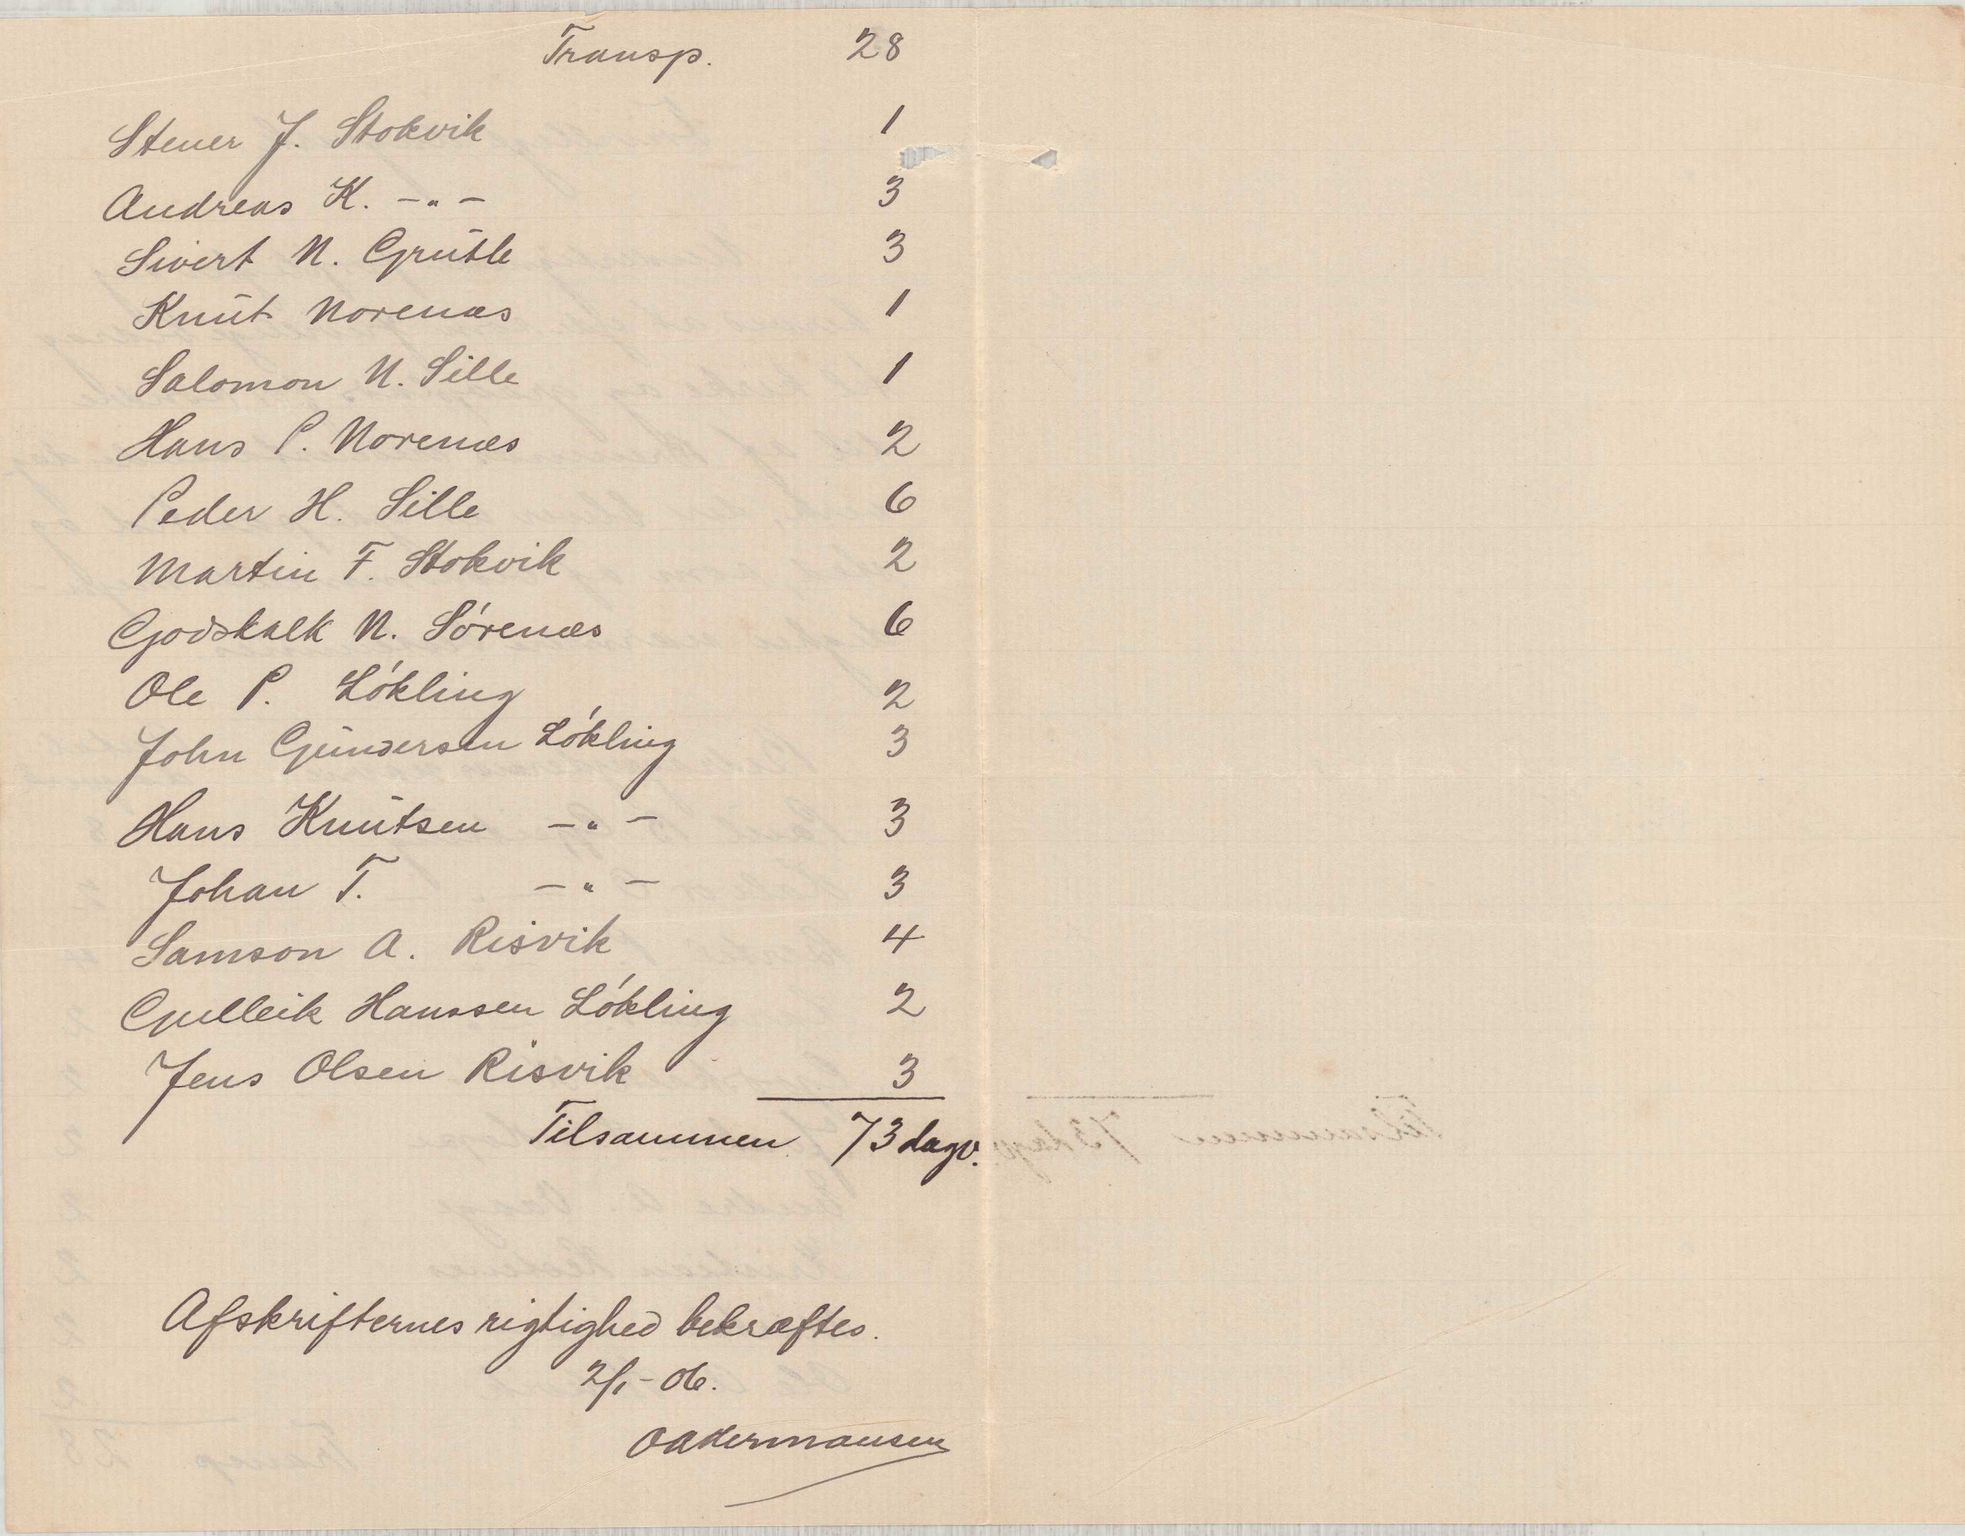 Transp. 28
Stener J. Stokvik 1
Andreas K. —"— 3
Sivert N. Grütle 3
Knut Norenæs 1
Salomon N. Sille 1
Hans P. Norenæs 2
Peder H. Sille 6
Martin F. Stokvik 2
Godskalk N. Sörenæs 6
Ole P. Lökling 2
John Gundersen Lökling 3
Hans Knutsen —"— 3
Johan T. —"— 3
Samson A. Risvik 4
Gulleik Hanssen Lökling 2
Jens Olsen Risvik 3
Tilsammen 73 dagv.
Afskrifternes rigtighed bekræftes.
2/1-06.